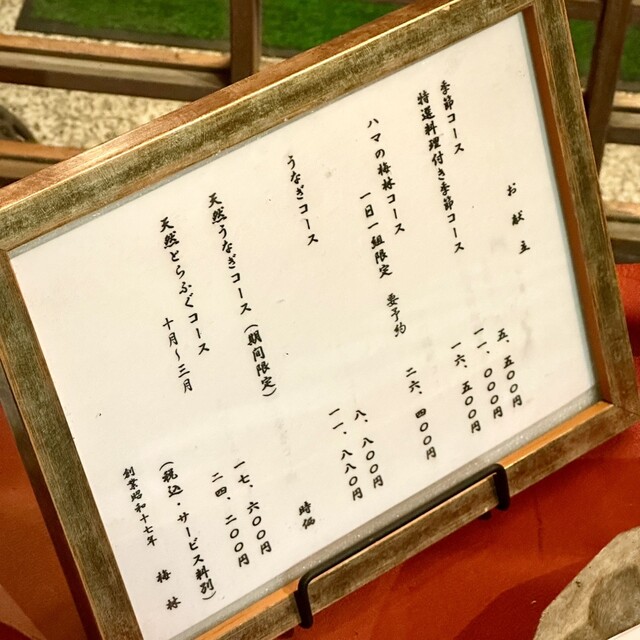 お献立
季節コース
五、五〇〇円
一一、〇〇〇円
特選料理付き季節コース
一六、五〇〇円
ハマの梅林コース
一日一組限定 要予約
二六、四〇〇円
うなぎコース
八、八〇〇円
一一、八八〇円
天然うなぎコース(期間限定)
時価
天然とらふぐコース
十月~三月
一七、六〇〇円
二四、二〇〇円
(税込・サービス料別)
創業昭和十七年 梅林